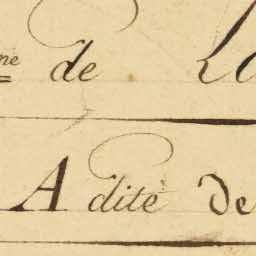 ne de
A dite De